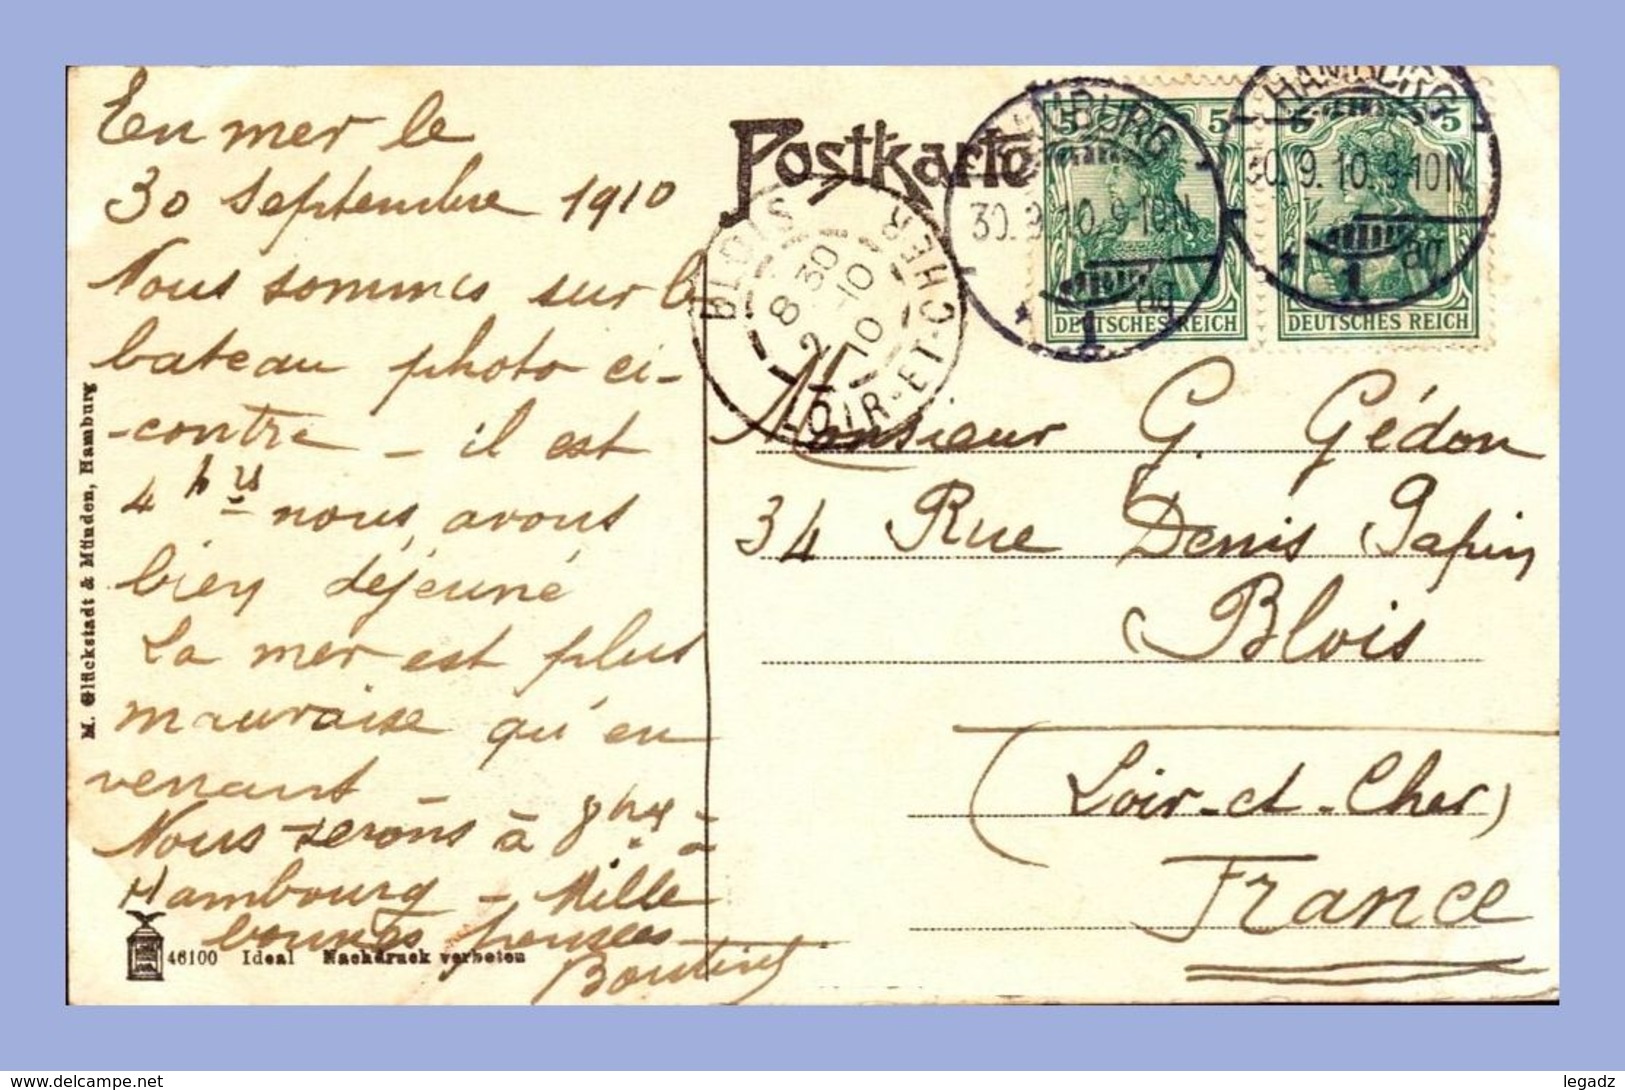 En mer le
30 septembre 1910
Nous sommes sur le
bateau photo ci-
-contre - il est
4 hrs nous avons
bien déjeuné
La mer est plus
mauvaise qu'en
venant -
Nous serons à 8 hrs à
Hambourg - Mille
bonnes pensées
M. Glückstadt & Münden, Hamburg
46100 Ideal Nachdruck verboten
Postkarte
BLOIS
8 30
2 -10
10
LOIR-ET-CHER
HAMBURG
30.9.10.9-10N.
1
HAMBURG
30.9.10.9-10N.
1
5 5
DEUTSCHES REICH
5 5
DEUTSCHES REICH
Monsieur G. Gédon
34 Rue Denis Papin
Blois
(Loir-et-Cher)
France
delcampe.net
legadz